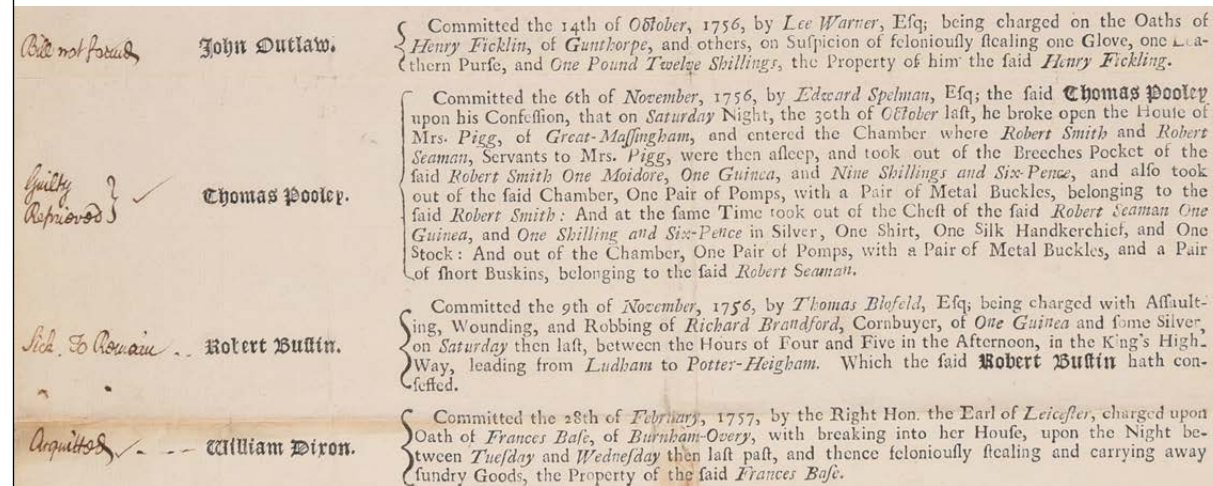 Bill not found
John Outlaw.
Committed the 14th of October, 1756, by Lee Warner, Eſq; being charged on the Oaths of
Henry Ficklin, of Gunthorpe, and others, on Suſpicion of feloniouſly ſtealing one Glove, one Lea-
thern Purſe, and One Pound Twelve Shillings, the Property of him the ſaid Henry Fickling.
Guilty
Reprieved
Thomas Pooley.
Committed the 6th of November, 1756, by Edward Spelman, Eſq; the ſaid Thomas Pooley
upon his Confeſſion, that on Saturday Night, the 30th of October laſt, he broke open the Houſe of
Mrs. Pigg, of Great-Maſſingham, and entered the Chamber where Robert Smith and Robert
Seaman, Servants to Mrs. Pigg, were then aſleep, and took out of the Breeches Pocket of the
ſaid Robert Smith One Moidore, One Guinea, and Nine Shillings and Six-Pence, and alſo took
out of the ſaid Chamber, One Pair of Pomps, with a Pair of Metal Buckles, belonging to the
ſaid Robert Smith: And at the ſame Time took out of the Cheſt of the ſaid Robert Seaman One
Guinea, and One Shilling and Six-Pence in Silver, One Shirt, One Silk Handkerchief, and One
Stock: And out of the Chamber, One Pair of Pomps, with a Pair of Metal Buckles, and a Pair
of ſhort Buskins, belonging to the ſaid Robert Seaman.
Sick. To Remain
Robert Buſtin.
Committed the 9th of November, 1756, by Thomas Blofeld, Eſq; being charged with Aſſault-
ing, Wounding, and Robbing of Richard Brandford, Cornbuyer, of One Guinea and ſome Silver,
on Saturday then laſt, between the Hours of Four and Five in the Afternoon, in the King's High-
Way, leading from Ludham to Potter-Heigham. Which the ſaid Robert Buſtin hath con-
feſſed.
Acquitted
William Dixon.
Committed the 28th of February, 1757, by the Right Hon. the Earl of Leiceſter, charged upon
Oath of Frances Baſe, of Burnham-Overy, with breaking into her Houſe, upon the Night be-
tween Tueſday and Wedneſday then laſt paſt, and thence feloniouſly ſtealing and carrying away
ſundry Goods, the Property of the ſaid Frances Baſe.